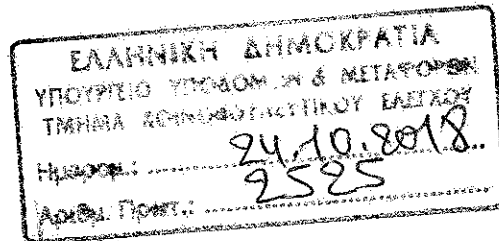 ΕΛΛΗΝΙΚΗ ΔΗΜΟΚΡΑΤΙΑ
ΥΠΟΥΡΓΕΙΟ ΥΠΟΔΟΜΩΝ & ΜΕΤΑΦΟΡΩΝ
ΤΜΗΜΑ ΚΟΙΝΟΒΟΥΛΕΥΤΙΚΟΥ ΕΛΕΓΧΟΥ
Ημερομ.: 24.10.2018
Αριθμ. Πρωτ.: 2525